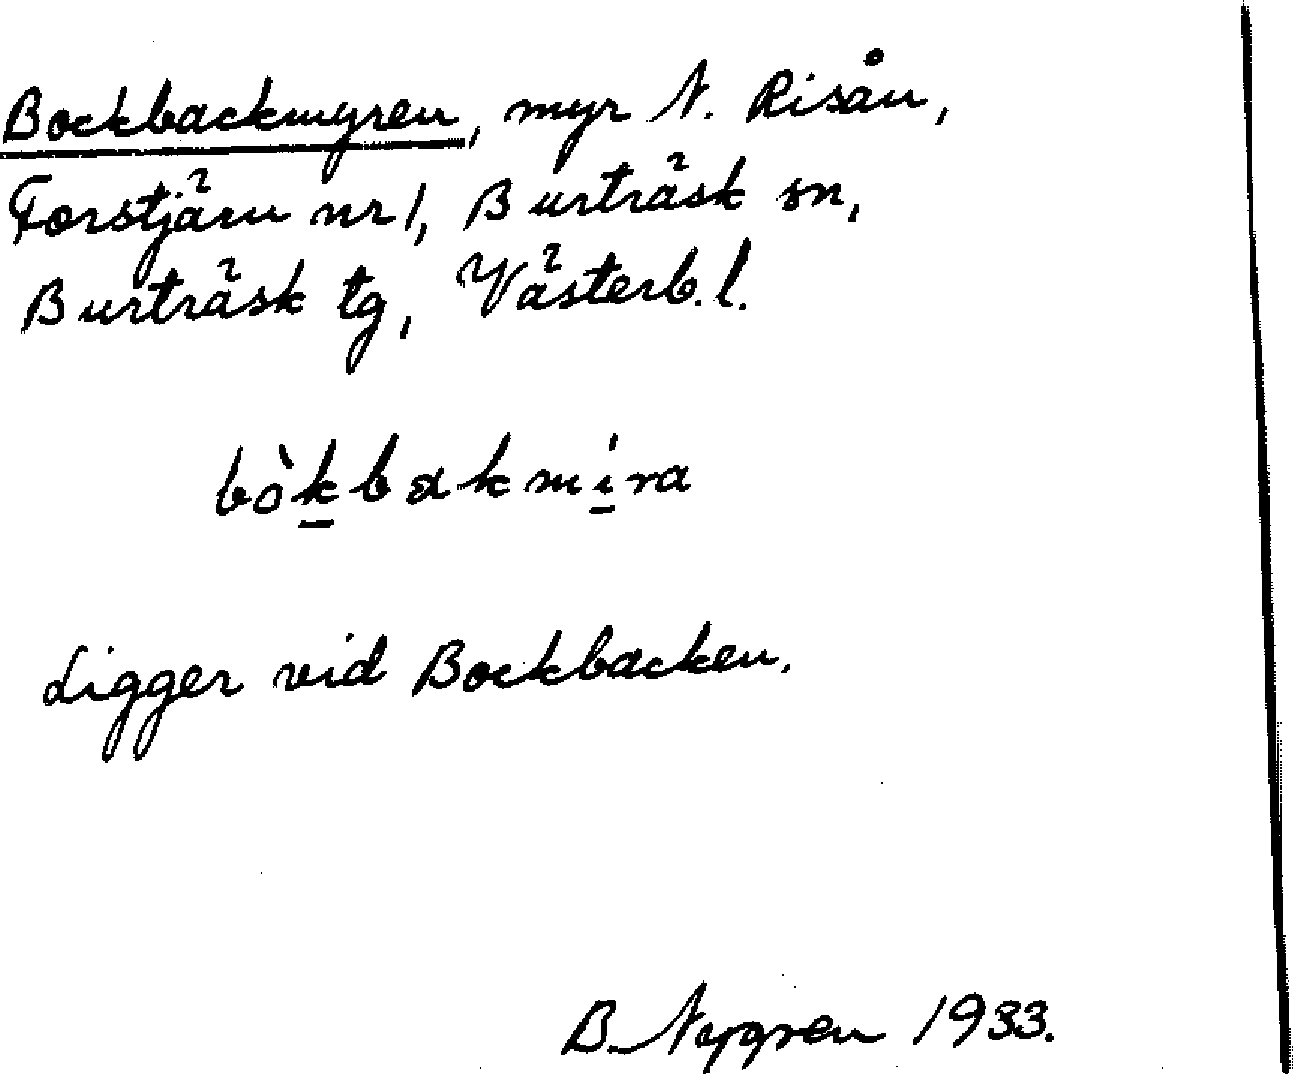 Bockbackmyren, myr N. Risån,
Forstjärn nr 1, Burträsk sn,
Burträsk tg, Västerb. l.
bòk̲bakmí̲ra
Ligger vid Bockbacken.
B. Nygren 1933.